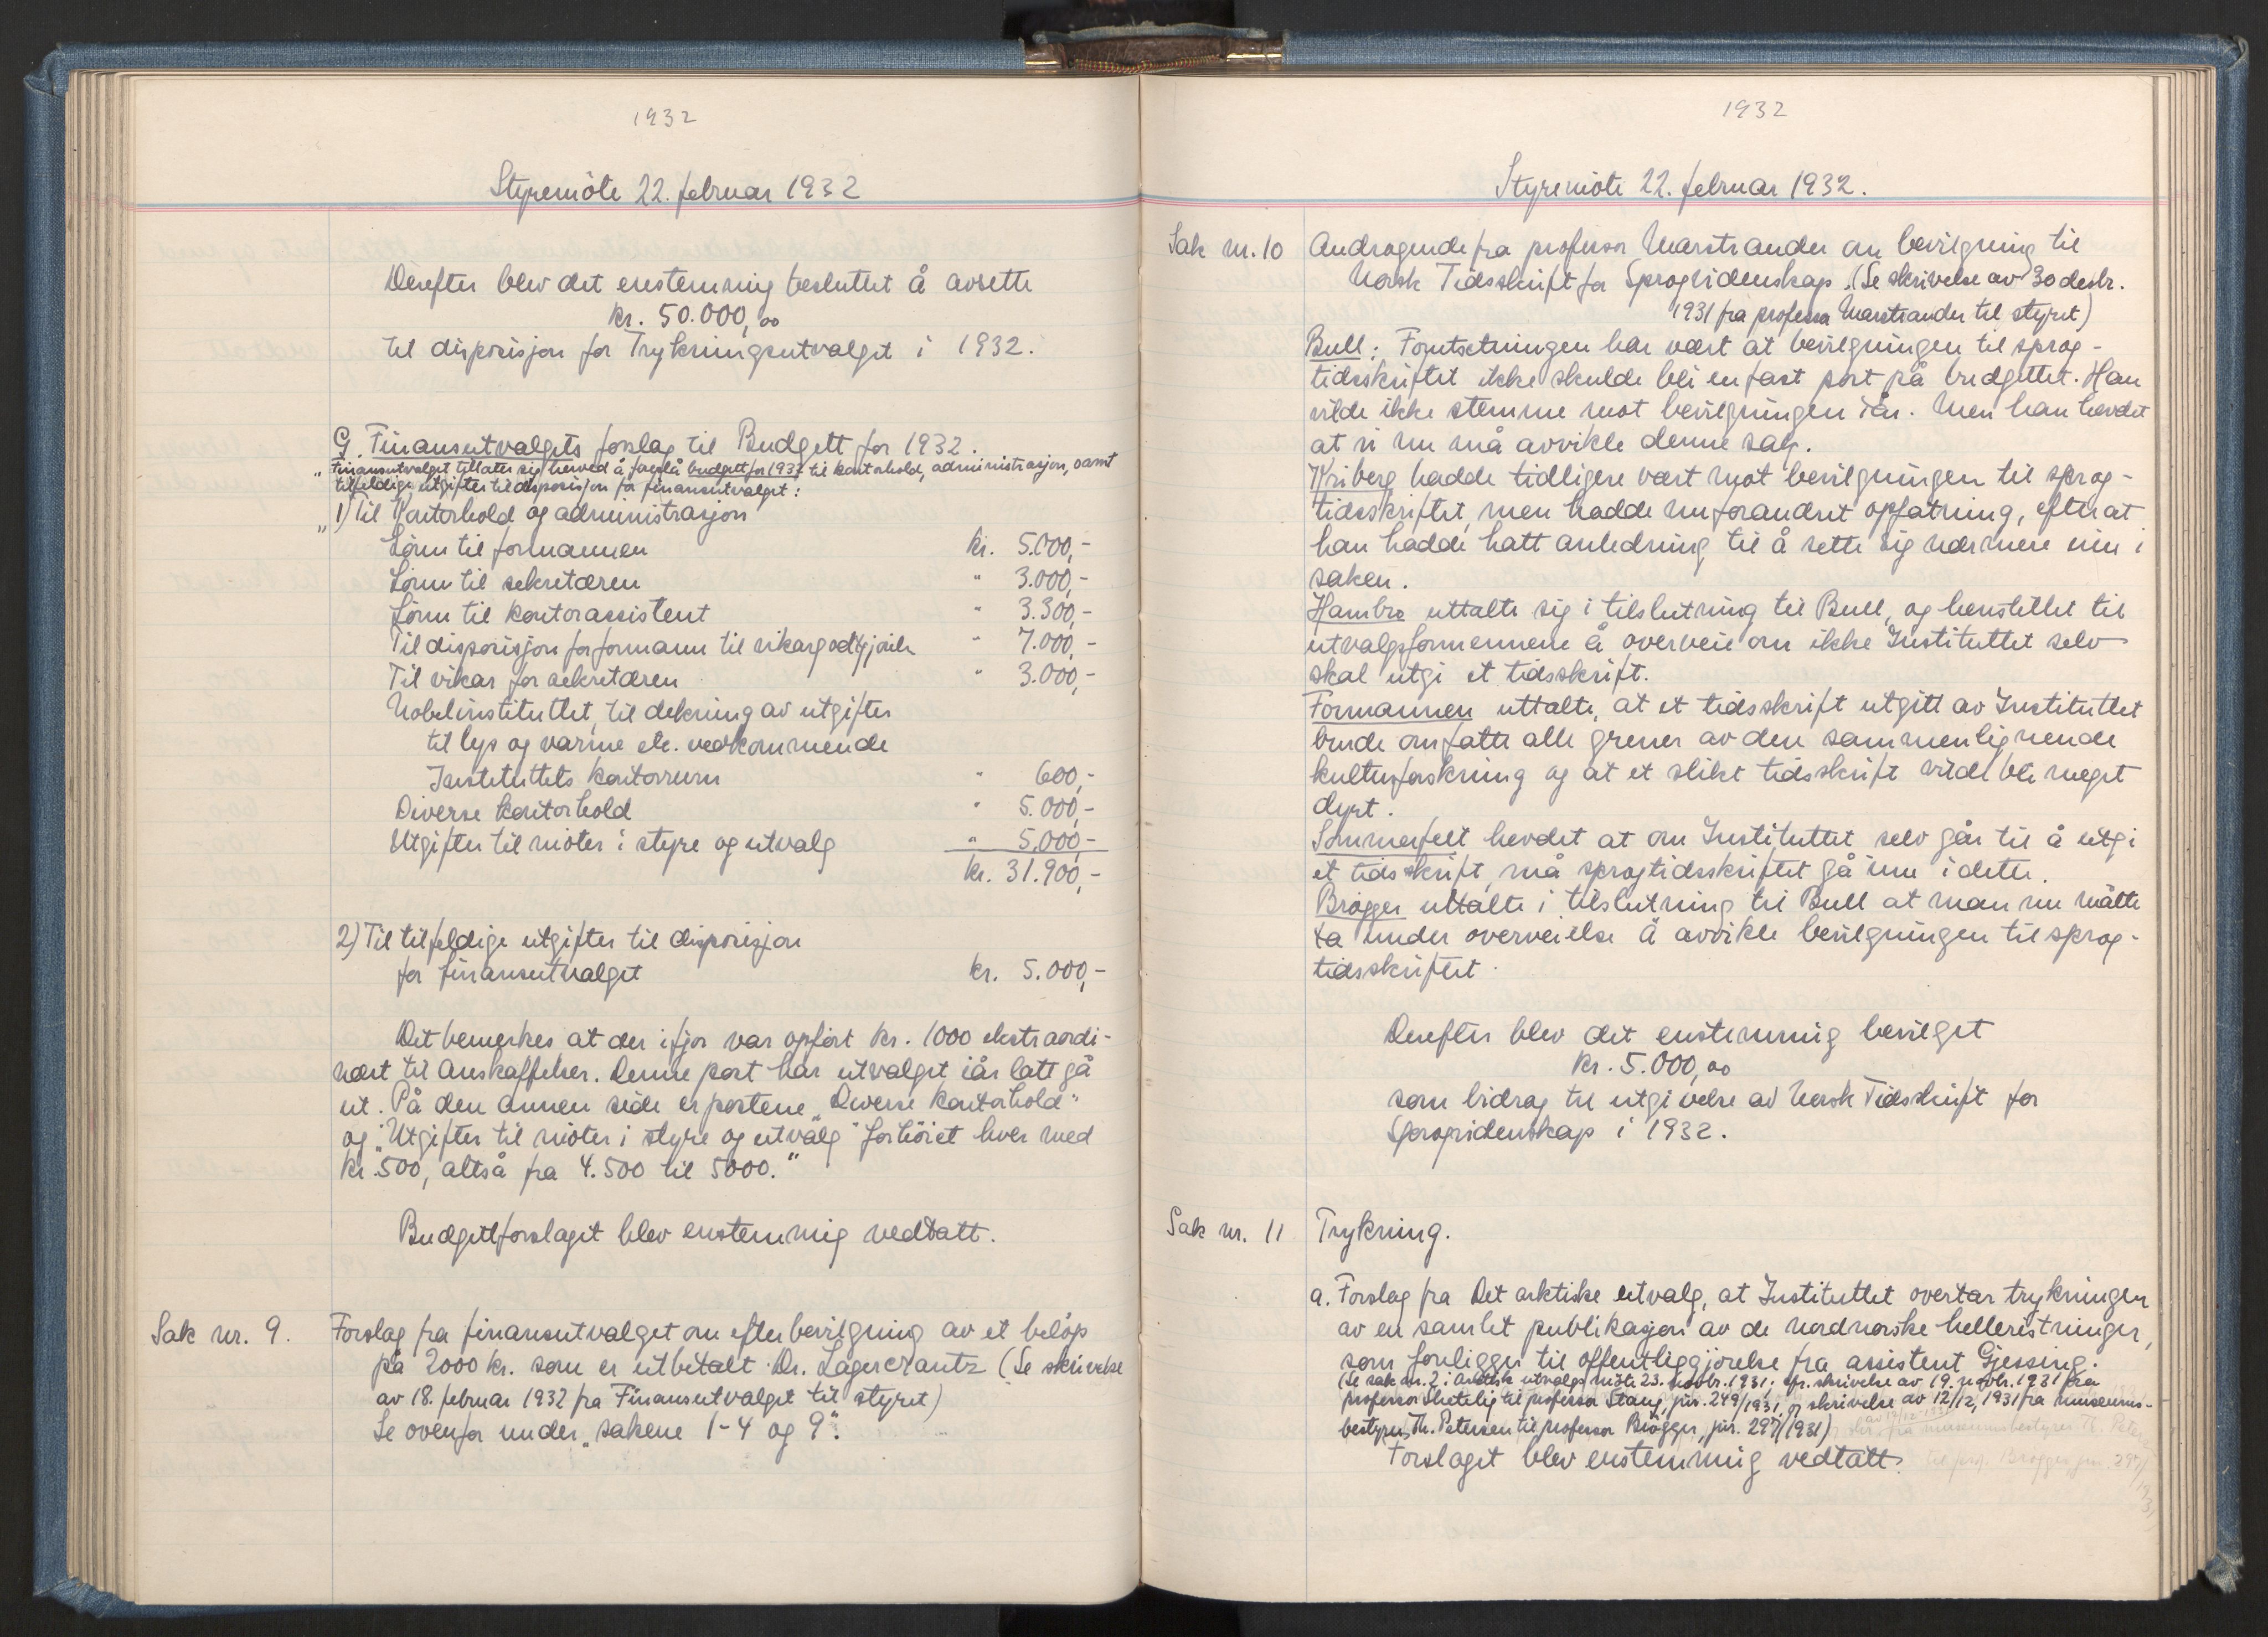 1932
Styremöte 22. februar 1932
Derefter blev det enstemmig besluttet å avsette
kr. 50.000,00
til disposisjon for Trykningsutvalget i 1932.
G. Finansutvalgets forslag til Budgett for 1932.
"Finansutvalget tillater sig herved å foreslå budgett for 1932 til kontorhold, administrasjon, samt
tilfeldige utgifter til disposisjon for finansutvalget:
"1) Til Kontorhold og administrasjon
Lönn til formannen kr. 5.000,-
Lönn til sekretæren " 3.000,-
Lönn til kontorassistent " 3.300,-
Til disposisjon for formann til vikargodtgjörelse " 7.000,-
Til vikar for sekretæren " 3.000,-
Nobelinstituttet, til dekning av utgifter
til lys og varme etc. vedkommende
Instituttets kontorrum " 600,-
Diverse kontorhold " 5.000,-
Utgifter til möter i styre og utvalg " 5.000,-
kr. 31.900,-
2) Til tilfeldige utgifter til disposisjon
for finansutvalget kr. 5.000,-
Det bemerkes at der ifjor var opfört kr. 1000 ekstraordi-
nært til Anskaffelser. Denne post har utvalget iår latt gå
ut. På den annen side er postene "Diverse kontorhold"
og "Utgifter til möter i styre og utvalg" forhöiet hver med
kr. 500, altså fra 4.500 til 5000."
Budgettforslaget blev enstemmig vedtatt.
Sak nr. 9. Forslag fra finansutvalget om efterbevilgning av et belöp
på 2000 kr. som er utbetalt Dr. Lagercrantz (Se skrivelse
av 18. februar 1932 fra Finansutvalget til styret)
Se ovenfor under "sakene 1-4 og 9".
1932
Styremöte 22. februar 1932.
Sak nr. 10 Andragende fra professor Marstrander om bevilgning til
Norsk Tidsskrift for Sprogvidenskap. (Se skrivelse av 30 desbr.
1931 fra professor Marstrander til styret)
Bull: Forutsetningen har vært at bevilgningen til sprog-
tidsskriftet ikke skulde bli en fast post på budgettet. Han
vilde ikke stemme mot bevilgningen iår. Men han hevdet
at vi nu må avvikle denne sag.
Wriberg hadde tidligere vært mot bevilgningen til sprog-
tidsskriftet, men hadde nu forandret opfatning, efterat
han hadde hatt anledning til å sette sig nærmere inn i
saken.
Hambro uttalte sig i tilslutning til Bull, og henstillet til
utvalgsformennene å overveie om ikke Instituttet selv
skal utgi et tidsskrift.
Formannen uttalte, at et tidsskrift utgitt av Instituttet
burde omfatte alle grener av den sammenlignende
kulturforskning og at et slikt tidsskrift vilde bli meget
dyrt.
Sommerfelt hevdet at om Instituttet selv går til å utgi
et tidsskrift, må sprogtidsskriftet gå inn i dette.
Brögger uttalte i tilslutning til Bull at man nu måtte
ta under overveielse å avvikle bevilgningen til sprog-
tidsskriftet.
Derefter blev det enstemmig bevilget
kr. 5.000,00
som bidrag til utgivelse av Norsk Tidsskrift for
Sprogvidenskap i 1932.
Sak nr. 11 Trykning.
a. Forslag fra Det arktiske utvalg, at Instituttet overtar trykningen
av en samlet publikasjon av de nordnorske helleristninger,
som foreligger til offentliggjörelse fra assistent Gjessing.
(Se sak nr. 2 i Arktisk utvalgs möte 23. novbr. 1931; jfr. skrivelse av 19. novbr. 1931 fra
professor Shetelig til professor Stang, jnr. 249/1931, og skrivelse av 12/12, 1931 fra museums-
bestyrer Th. Petersen til professor Brögger, jnr. 297/1931)
Forslaget blev enstemmig vedtatt.
av 12/12 1931
fra museumsbestyrer Th. Petersen
til prof. Brögger jnr. 297/1931